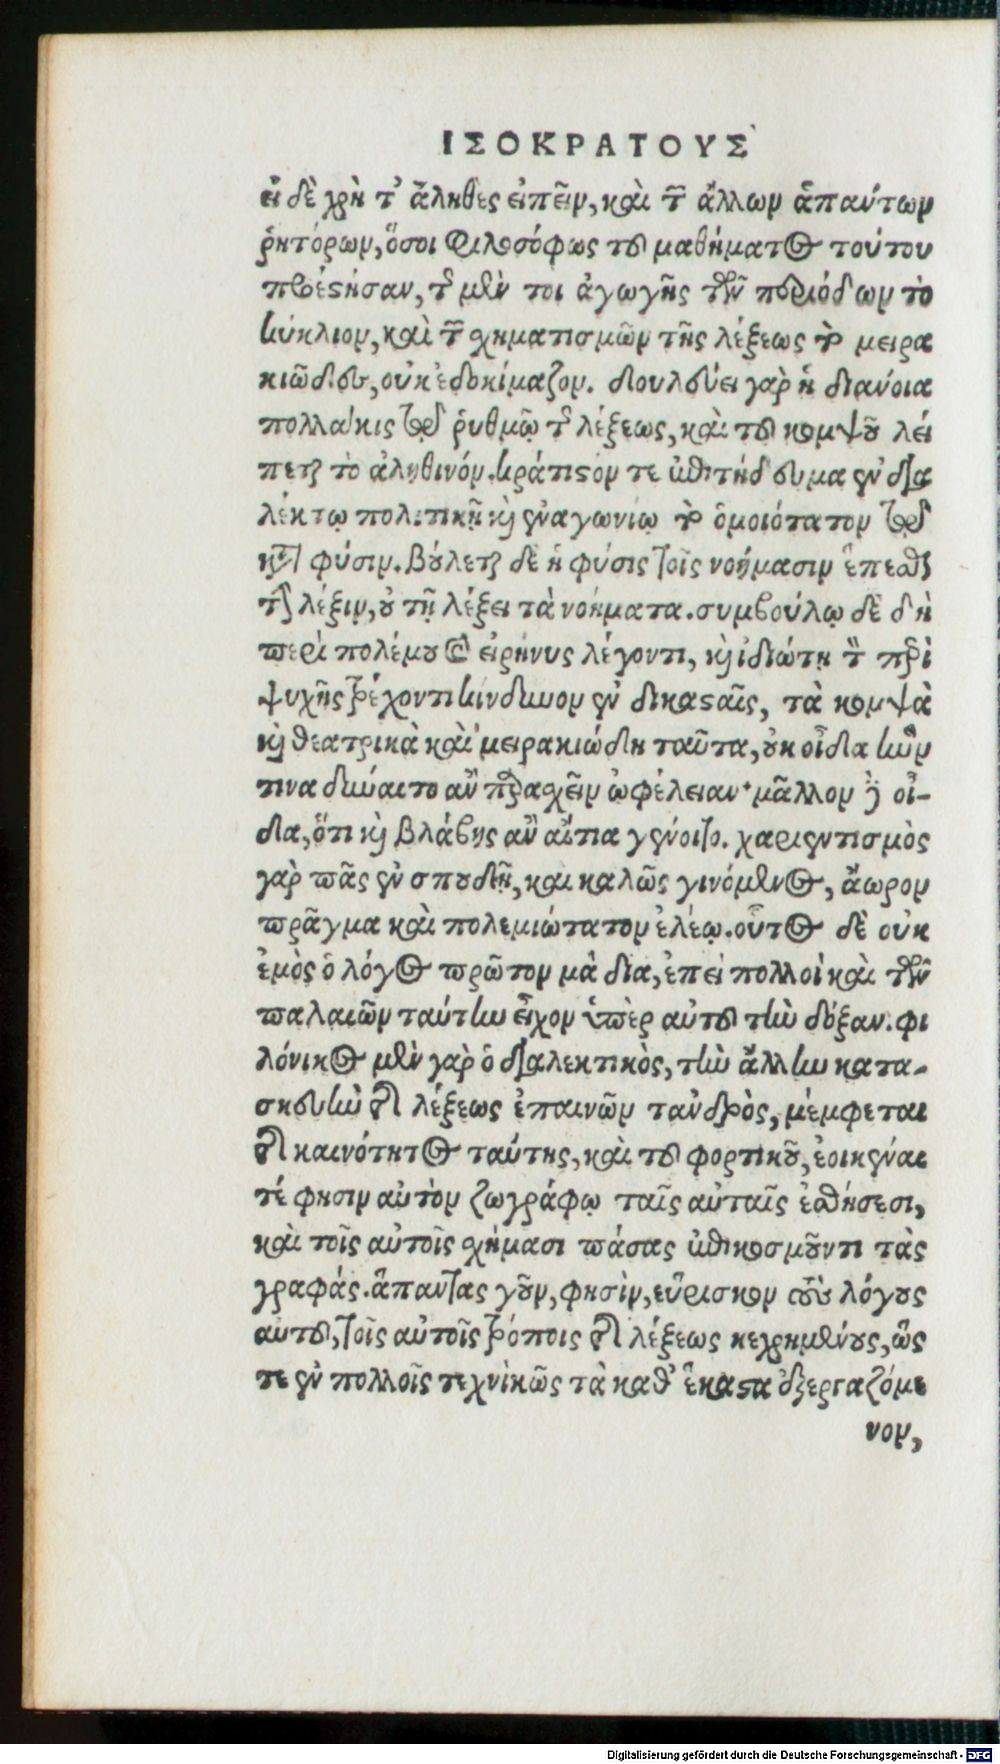 ΙΣΟΚΡΑΤΟΥΣ
εἰ δὲ χρὴ τ' ἀληθὲς εἰπεῖν, καὶ τῶν ἄλλων ἁπάντων
ῥητόρων, ὅσοι φιλοσόφως τοῦ μαθήματος τούτου
προέστησαν, τῆς μέν τοι ἀγωγῆς τῶν περιόδων τὸ
κύκλιον, καὶ τῶν σχηματισμῶν τῆς λέξεως τὸ μειρα
κιῶδες, οὐκ ἐδοκίμαζον. δουλεύει γὰρ ἡ διάνοια
πολλάκις τῷ ῥυθμῷ τῆς λέξεως, καὶ τοῦ κομψοῦ λεί
πεται τὸ ἀληθινόν. κράτιστόν τε ἐπιτήδευμα ἐν δια
λέκτῳ πολιτικῇ καὶ ἐναγωνίῳ τὸ ὁμοιότατον τῷ
κατὰ φύσιν. βούλεται δὲ ἡ φύσις τοῖς νοήμασιν ἕπεσθαι
τὴν λέξιν, οὐ τῇ λέξει τὰ νοήματα. συμβούλῳ δὲ δὴ
περὶ πολέμου καὶ εἰρήνης λέγοντι, καὶ ἰδιώτῃ τὸν περὶ
ψυχῆς τρέχοντι κίνδυνον ἐν δικασταῖς, τὰ κομψὰ
καὶ θεατρικὰ καὶ μειρακιώδη ταῦτα, οὐκ οἶδα ἣν
τινα δύναιτο ἂν παρασχεῖν ὠφέλειαν· μᾶλλον δὲ οἶ-
δα, ὅτι καὶ βλάβης ἂν αἴτια γένοιτο. χαριεντισμὸς
γὰρ πᾶς ἐν σπουδῇ, καὶ καλῶς γινόμενος, ἄωρον
πρᾶγμα καὶ πολεμιώτατον ἐλέῳ. οὗτος δὲ οὐκ
ἐμὸς ὁ λόγος πρῶτον μὰ δία, ἐπεὶ πολλοὶ καὶ τῶν
παλαιῶν ταύτην εἶχον ὑπὲρ αὐτοῦ τὴν δόξαν. φι
λόνικος μὲν γὰρ ὁ διαλεκτικὸς, τὴν ἄλλην κατα-
σκευὴν τῆς λέξεως ἐπαινῶν τἀνδρὸς, μέμφεται
τῆς καινότητος ταύτης, καὶ τοῦ φορτικοῦ, ἐοικέναι
τέ φησιν αὐτὸν ζωγράφῳ ταῖς αὐταῖς ἐσθήσεσι,
καὶ τοῖς αὐτοῖς σχήμασι πάσας ἐπικοσμοῦντι τὰς
γραφάς. ἅπαντας γοῦν, φησὶν, εὕρισκον τοὺς λόγους
αὐτοῦ, τοῖς αὐτοῖς τρόποις τῆς λέξεως κεχρημένους, ὥς
τε ἐν πολλοῖς τεχνικῶς τὰ καθ' ἕκαστα ἐξεργαζόμε
νον,
Digitalisierung gefördert durch die Deutsche Forschungsgemeinschaft - DFG